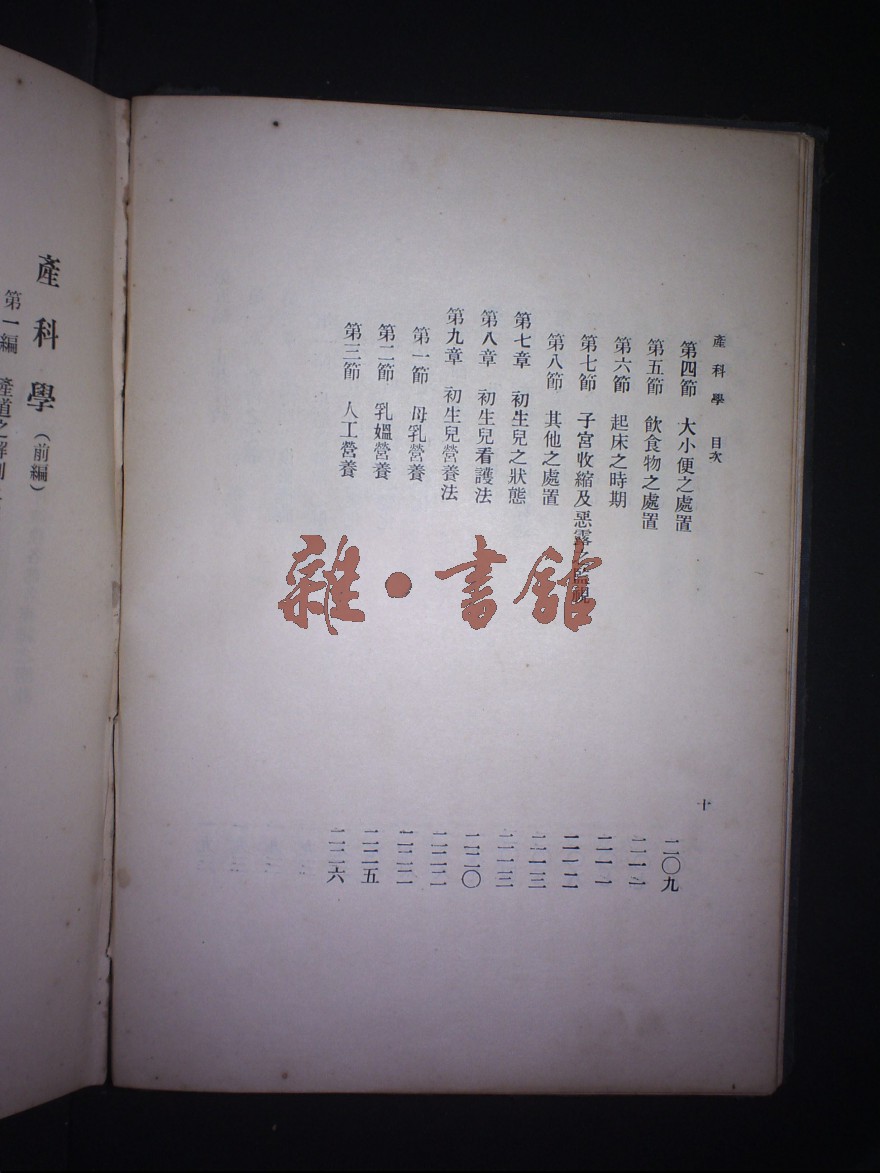 產科學 目次 十
第四節 大小便之處置 二〇九
第五節 飲食物之處置 二一一
第六節 起床之時期 二一一
第七節 子宮收縮及惡露之監視 二一二
第八節 其他之處置 二一三
第七章 初生兒之狀態 二一三
第八章 初生兒看護法 二二〇
第九章 初生兒營養法 二二二
第一節 母乳營養 二二二
第二節 乳媼營養 二二五
第三節 人工營養 二二六
雜·書館
產科學（前編）
第一編 產道之解剖